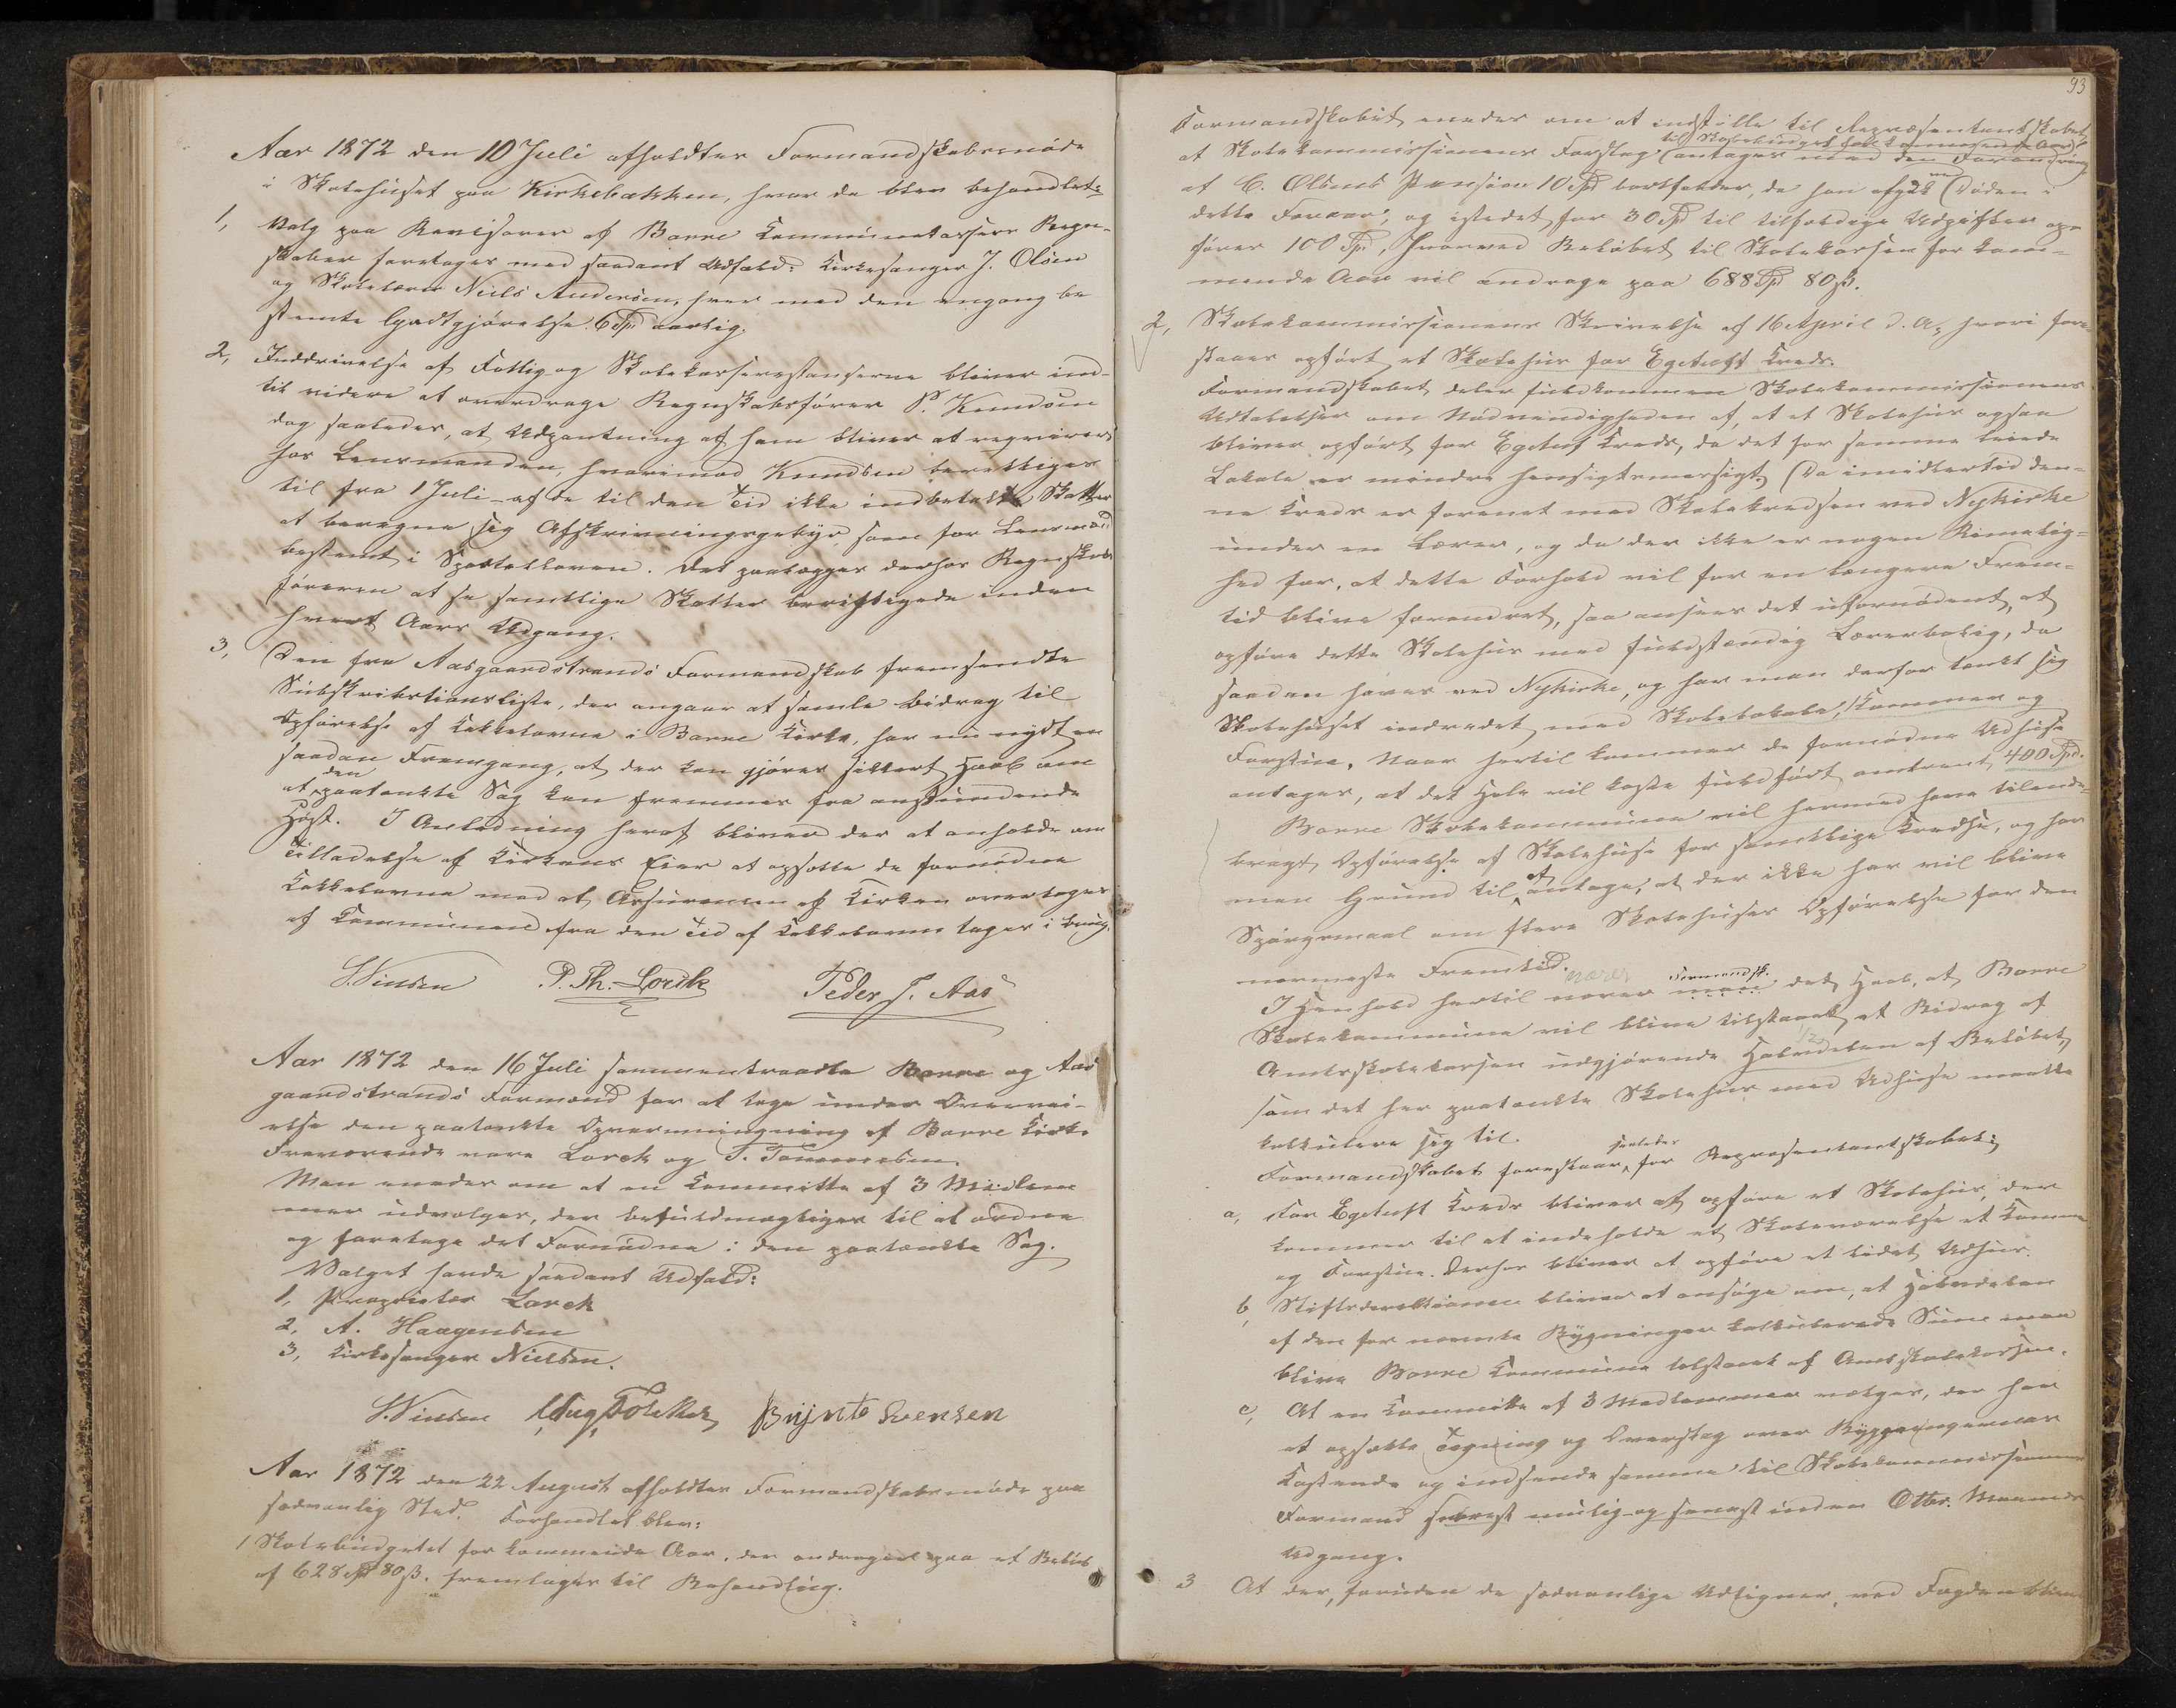 Aar 1872 den 10 Juli afholdtes Formandskabsmøde
i Skolehuset paa Kirkebakken, hvor da blev behandlet:
1, Valg paa Revisorer af Borre Kommunekassers Regn-
skaber foretoges med saadant Udfald: Kirkesanger J. Olsen
og Skolelærer Niels Andersen, hver med den engang be
stemte Godtgjørelse 6 Spd aarlig.
2, Inddrivelse af Fattig og Skolekasserestanserne bliver ind-
til videre at overdrage Regnskabsfører P. Knudsen
dog saaledes, at Udpantning af ham bliver at reqvirere
hos Lensmanden, hvorimod Knudsen berettiges
til fra 1 Juli af de til den Tid ikke indbetalte Skatter
at beregne sig Afskrivningsgebyr, som for Lensmænd
bestemt i Sportelloven. Det paalægges derhos Regnskabs
føreren at se samtlige Skatter berigtigede inden
hvert Aars Udgang.
3, Den fra Aasgaardstrands Formandskab fremsendte
Subskribtionsliste, der angaar at samle Bidrag til
Opførelse af Kakkelovne i Borre Kirke, har nu nydt en
saadan Fremgang, at der kan gjøres sikkert Haab om
at den paatænkte Sag kan fremmes fra anstundende
Høst. I Anledning heraf bliver der at anholde om
Tilladelse af Kirkens Eier at opsætte de fornødne
Kakkelovne med at Assurancen af Kirken overtages
af Kommunen fra den Tid af Kakkelovne tages i brug.
P. Th. Lorck Peder J. Aas
Aar 1872 den 16 Juli sammentraadte Borre og Aas
gaardstrands Formænd for at tage under Overvei-
else den paatænkte Opvarmning af Borre Kirke
Fraværende vare Lorck og T. Tommesen.
Man enedes om at en Committe af 3 Medlem
mer udvælges, der befuldmægtiges til at ordne
og foretage det Fornødne i den paatænkte Sag.
Valget havde saadant Udfald:
1, Proprietær Lorck
2, A. Haagensen
3, Kirkesanger Nielsen.
Brynte Svensen
Aar 1872 den 22 August afholdtes Formandskabsmøde paa
sædvanlig Sted. Forhandlet blev:
1 Skolebudgetet for kommende Aar, der androges paa et Beløb
af 628 Spd 80 ß. fremlagdes til Behandling.
93
Formandskabet enedes om at indstille til Repræsentantskabet
til Skolebudget for kommende Aar
at Skolekommissionens Forslag antages med den Forandring
at C. Olsens Pension 10 Spd bortfalder, da han afgik ved Døden i
dette Foraar, og istedet for 30 Spd til tilfældige Udgifter op-
føres 100 Spd, hvorved Beløbet til Skolekassen for kom-
mende Aar vil andrage paa 688 Spd 80 ß.
2, Skolekommissionens Skrivelse af 16 April d. A, hvori fore-
slaaes opført et Skolehus for Egetuft Kreds.
Formandskabet deler fuldkommen Skolekommissionens
Udtalelser om Nødvendigheden af, at et Skolehus ogsaa
bliver opført for Egetuft Kreds, da det for samme leiede
Lokale er mindre hensigtsmæssigt. Da imidlertid den-
ne Kreds er forenet med Skolekredsen ved Nykirke
under en Lærer, og da der ikke er nogen Rimelig-
hed for, at dette Forhold vil for en længere Frem-
tid blive forandret, saa ansees det ufornødent, at
opføre dette Skolehus med fuldstændig Lærerbolig, da
saadan haves ved Nykirke, og har man derfor tænkt sig
Skolehuset indredet med Skolelokale, 1 Kammer og
Forstue. Naar hertil kommer de fornødne Udhuse
antages, at det Hele vil koste fuldført omtrent 400 Spd.
Borre Skolekommune vil hermed have tilende-
bragt Opførelse af Skolehuse for samtlige Kredse, og har
man Grund til at antage, at der ikke her vil blive
Spørgsmaal om flere Skolehuses Opførelse for den
nærmeste Fremtid.
I Henhold hertil nærer Formandsk. det Haab, at Borre
Skolekommune vil blive tilstaaet et Bidrag af
Amtsskolekassen udgjørende Halvdelen af Beløbet,
som det her paatænkte Skolehus med Udhuse maatte
kalkulere sig til.
Formandskabet foreslaar saaledes for Repræsentantskabet:
a, For Egetuft Kreds bliver at opføre et Skolehus, der
kommer til at indeholde et Skoleværelse et Kammer
og Forstue. Derhos bliver at opføre et lidet Udhus.
b, Stiftsdirektionen bliver at ansøge om, at Halvdelen
af den for nævnte Bygninger kalkulerede Sum maa
blive Borre Kommune tilstaaet af Amtsskolekassen.
c, At en Committe af 3 Medlemmer vælges, der har
at opsætte Tegning og Overslag over Bygningernes
Kostende og indsende samme til Skolekommissionens
Formand snarest mulig og senest inden Otbr. Maaneds
Udgang.
3 At der, foruden de sædvanlige Udligner, ved Fogden bliver